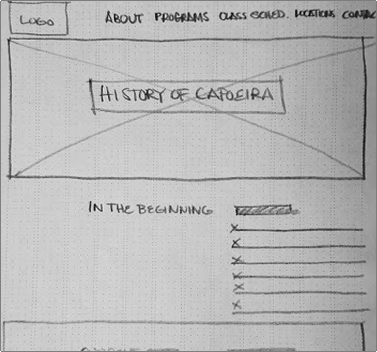 LOGO
ABOUT PROGRAMS CLASS SCHED. LOCATIONS CONTAC
HISTORY OF CAPOEIRA
IN THE BEGINNING